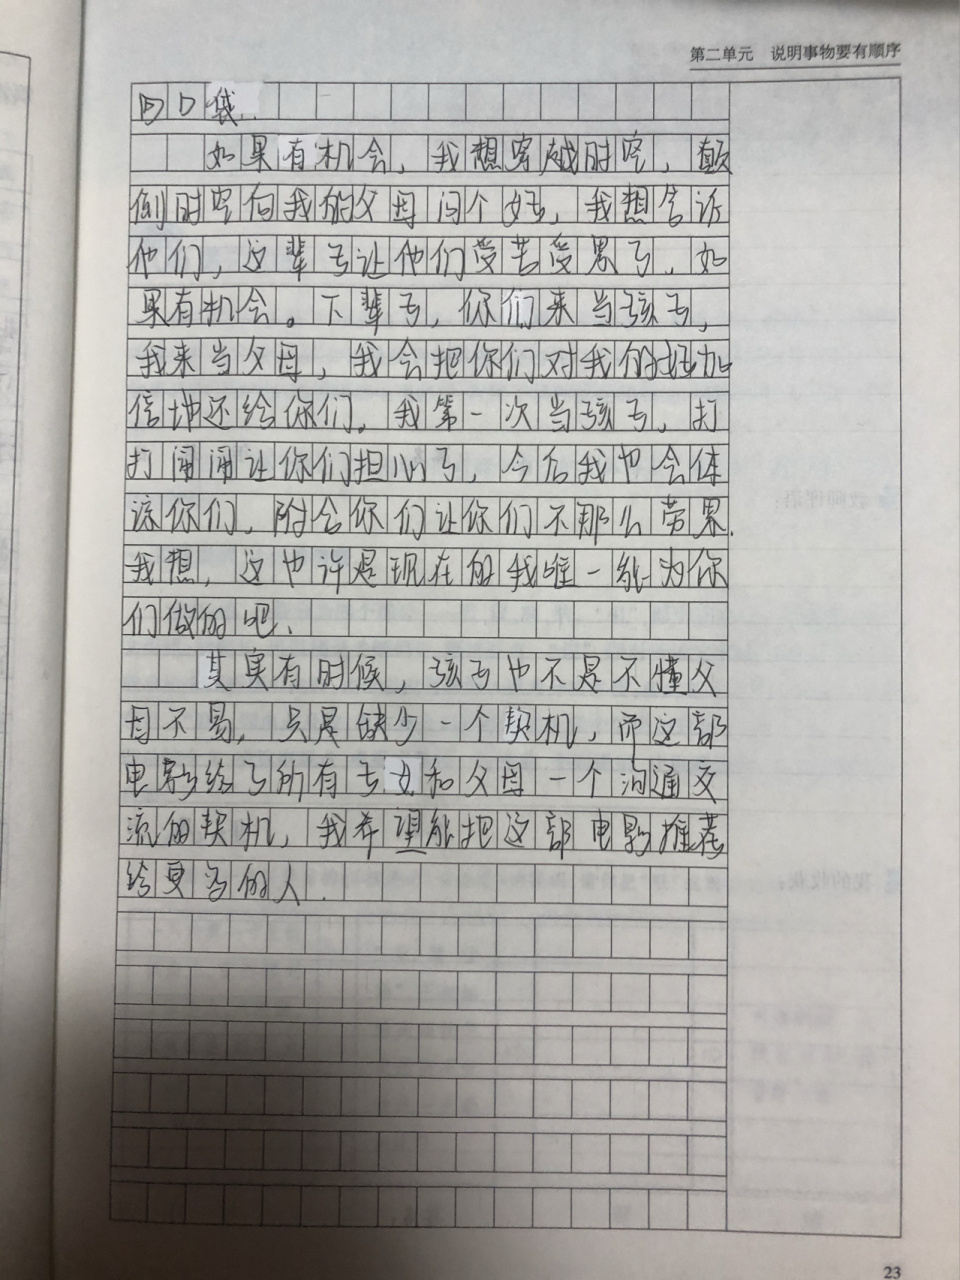 第二单元 说明事物要有顺序
回口袋.
如果有机会，我想穿越时空，颠
倒时空向我的父母问个好，我想告诉
他们，这辈子让他们受苦受累了，如
果有机会。下辈子，你们来当孩子，
我来当父母，我会把你们对我的好加
倍地还给你们。我第一次当孩子，打
打闹闹让你们担心了，今后我也会体
谅你们，陪会你们让你们不那么劳累.
我想，这也许是现在的我唯一能为你
们做的吧、
其实有时候，孩子也不是不懂父
母不易，只是缺少一个契机，而这部
电影给了所有子女和父母一个沟通交
流的契机，我希望能把这部电影推荐
给更多的人.
23